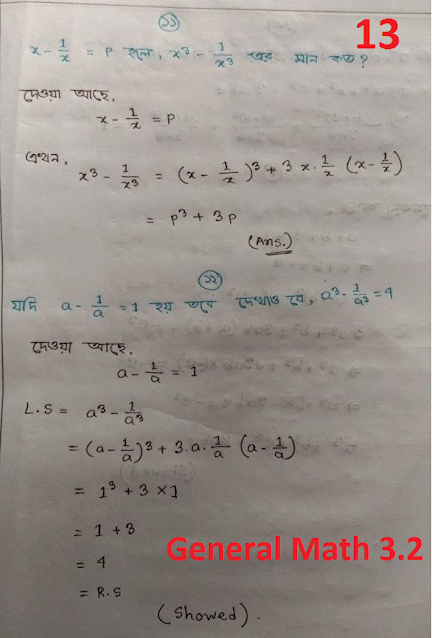 ১১
13
x - 1/x = P হলে, x³ - 1/x³ এর মান কত?
দেওয়া আছে,
x - 1/x = P
এখন,
x³ - 1/x³ = (x - 1/x)³ + 3 x. 1/x (x - 1/x)
= P³ + 3P
(Ans.)
১২
যদি a - 1/a = 1 হয় তবে দেখাও যে, a³ - 1/a³ = 4
দেওয়া আছে,
a - 1/a = 1
L.S = a³ - 1/a³
= (a - 1/a)³ + 3.a. 1/a (a - 1/a)
= 1³ + 3 × 1
= 1 + 3
General Math 3.2
= 4
= R.S
(Showed).